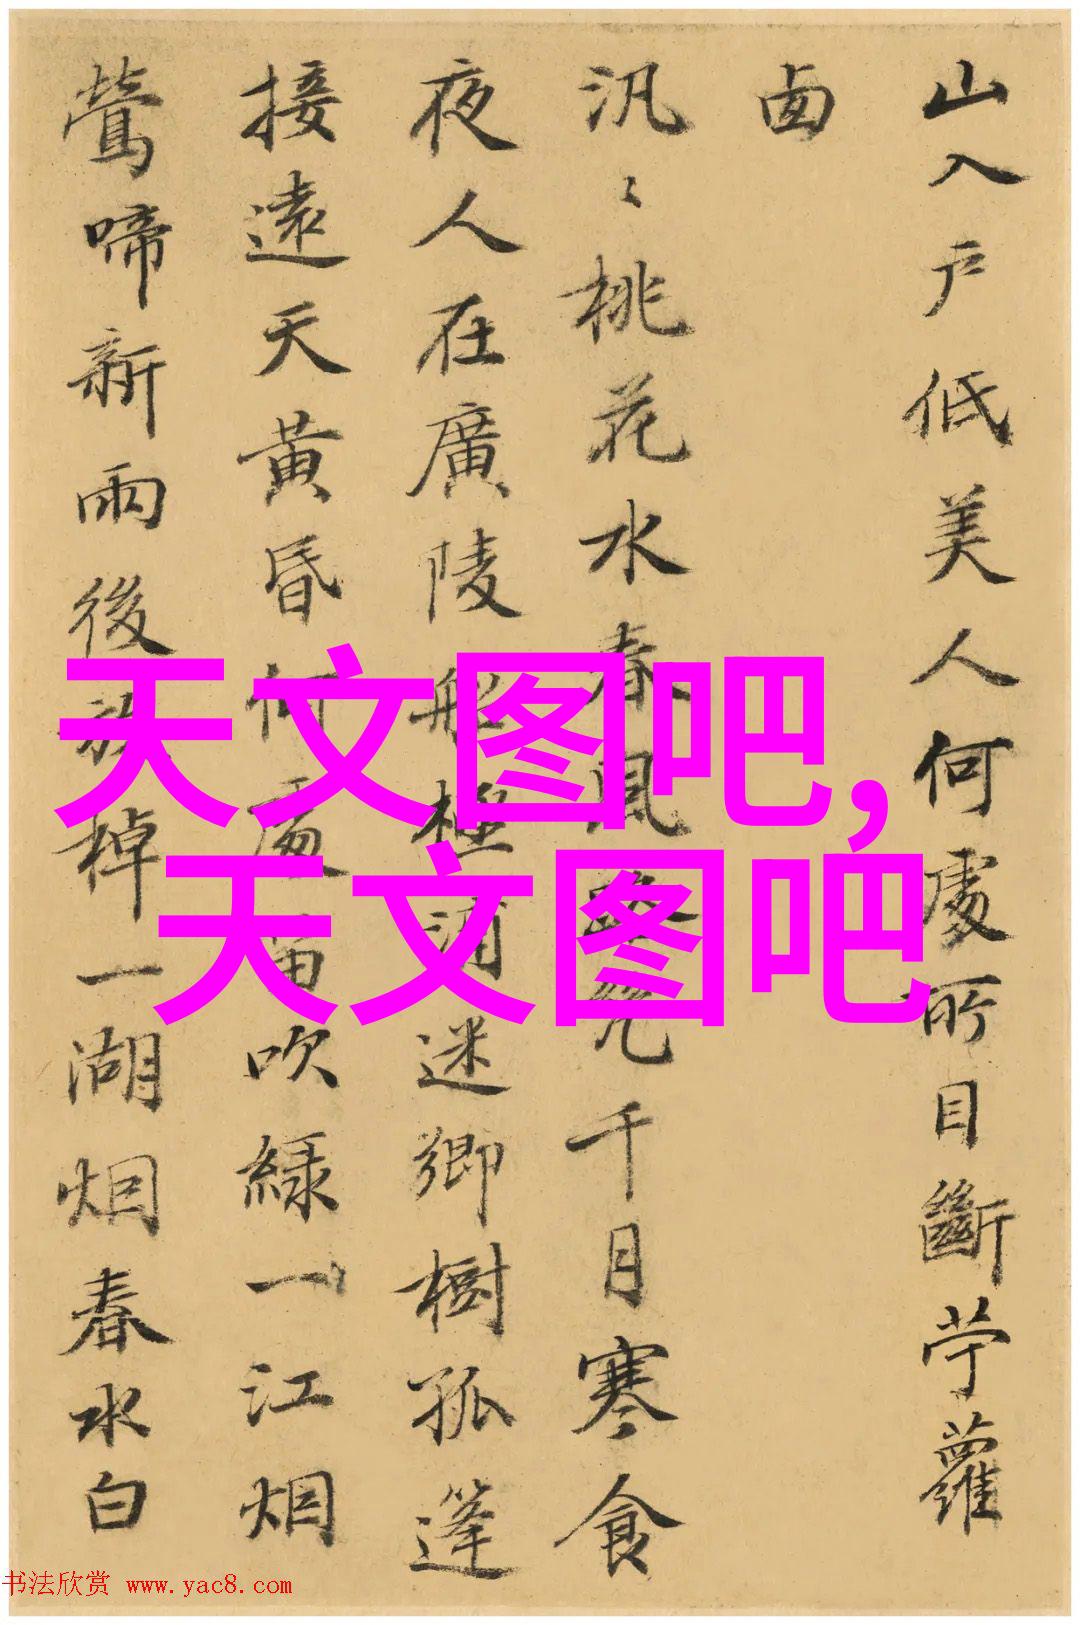 山入戶低美人何處所目斷苧蘿
卥
汎〻桃花水春風千月寒食
夜人在廣陵船極浦迷鄉樹孤篷
接遠天黃昏何處笛吹綠一江烟
鶯啼新雨後放棹一湖烟春水白
天文图吧,
天文图吧
书法欣赏 www.yac8.com